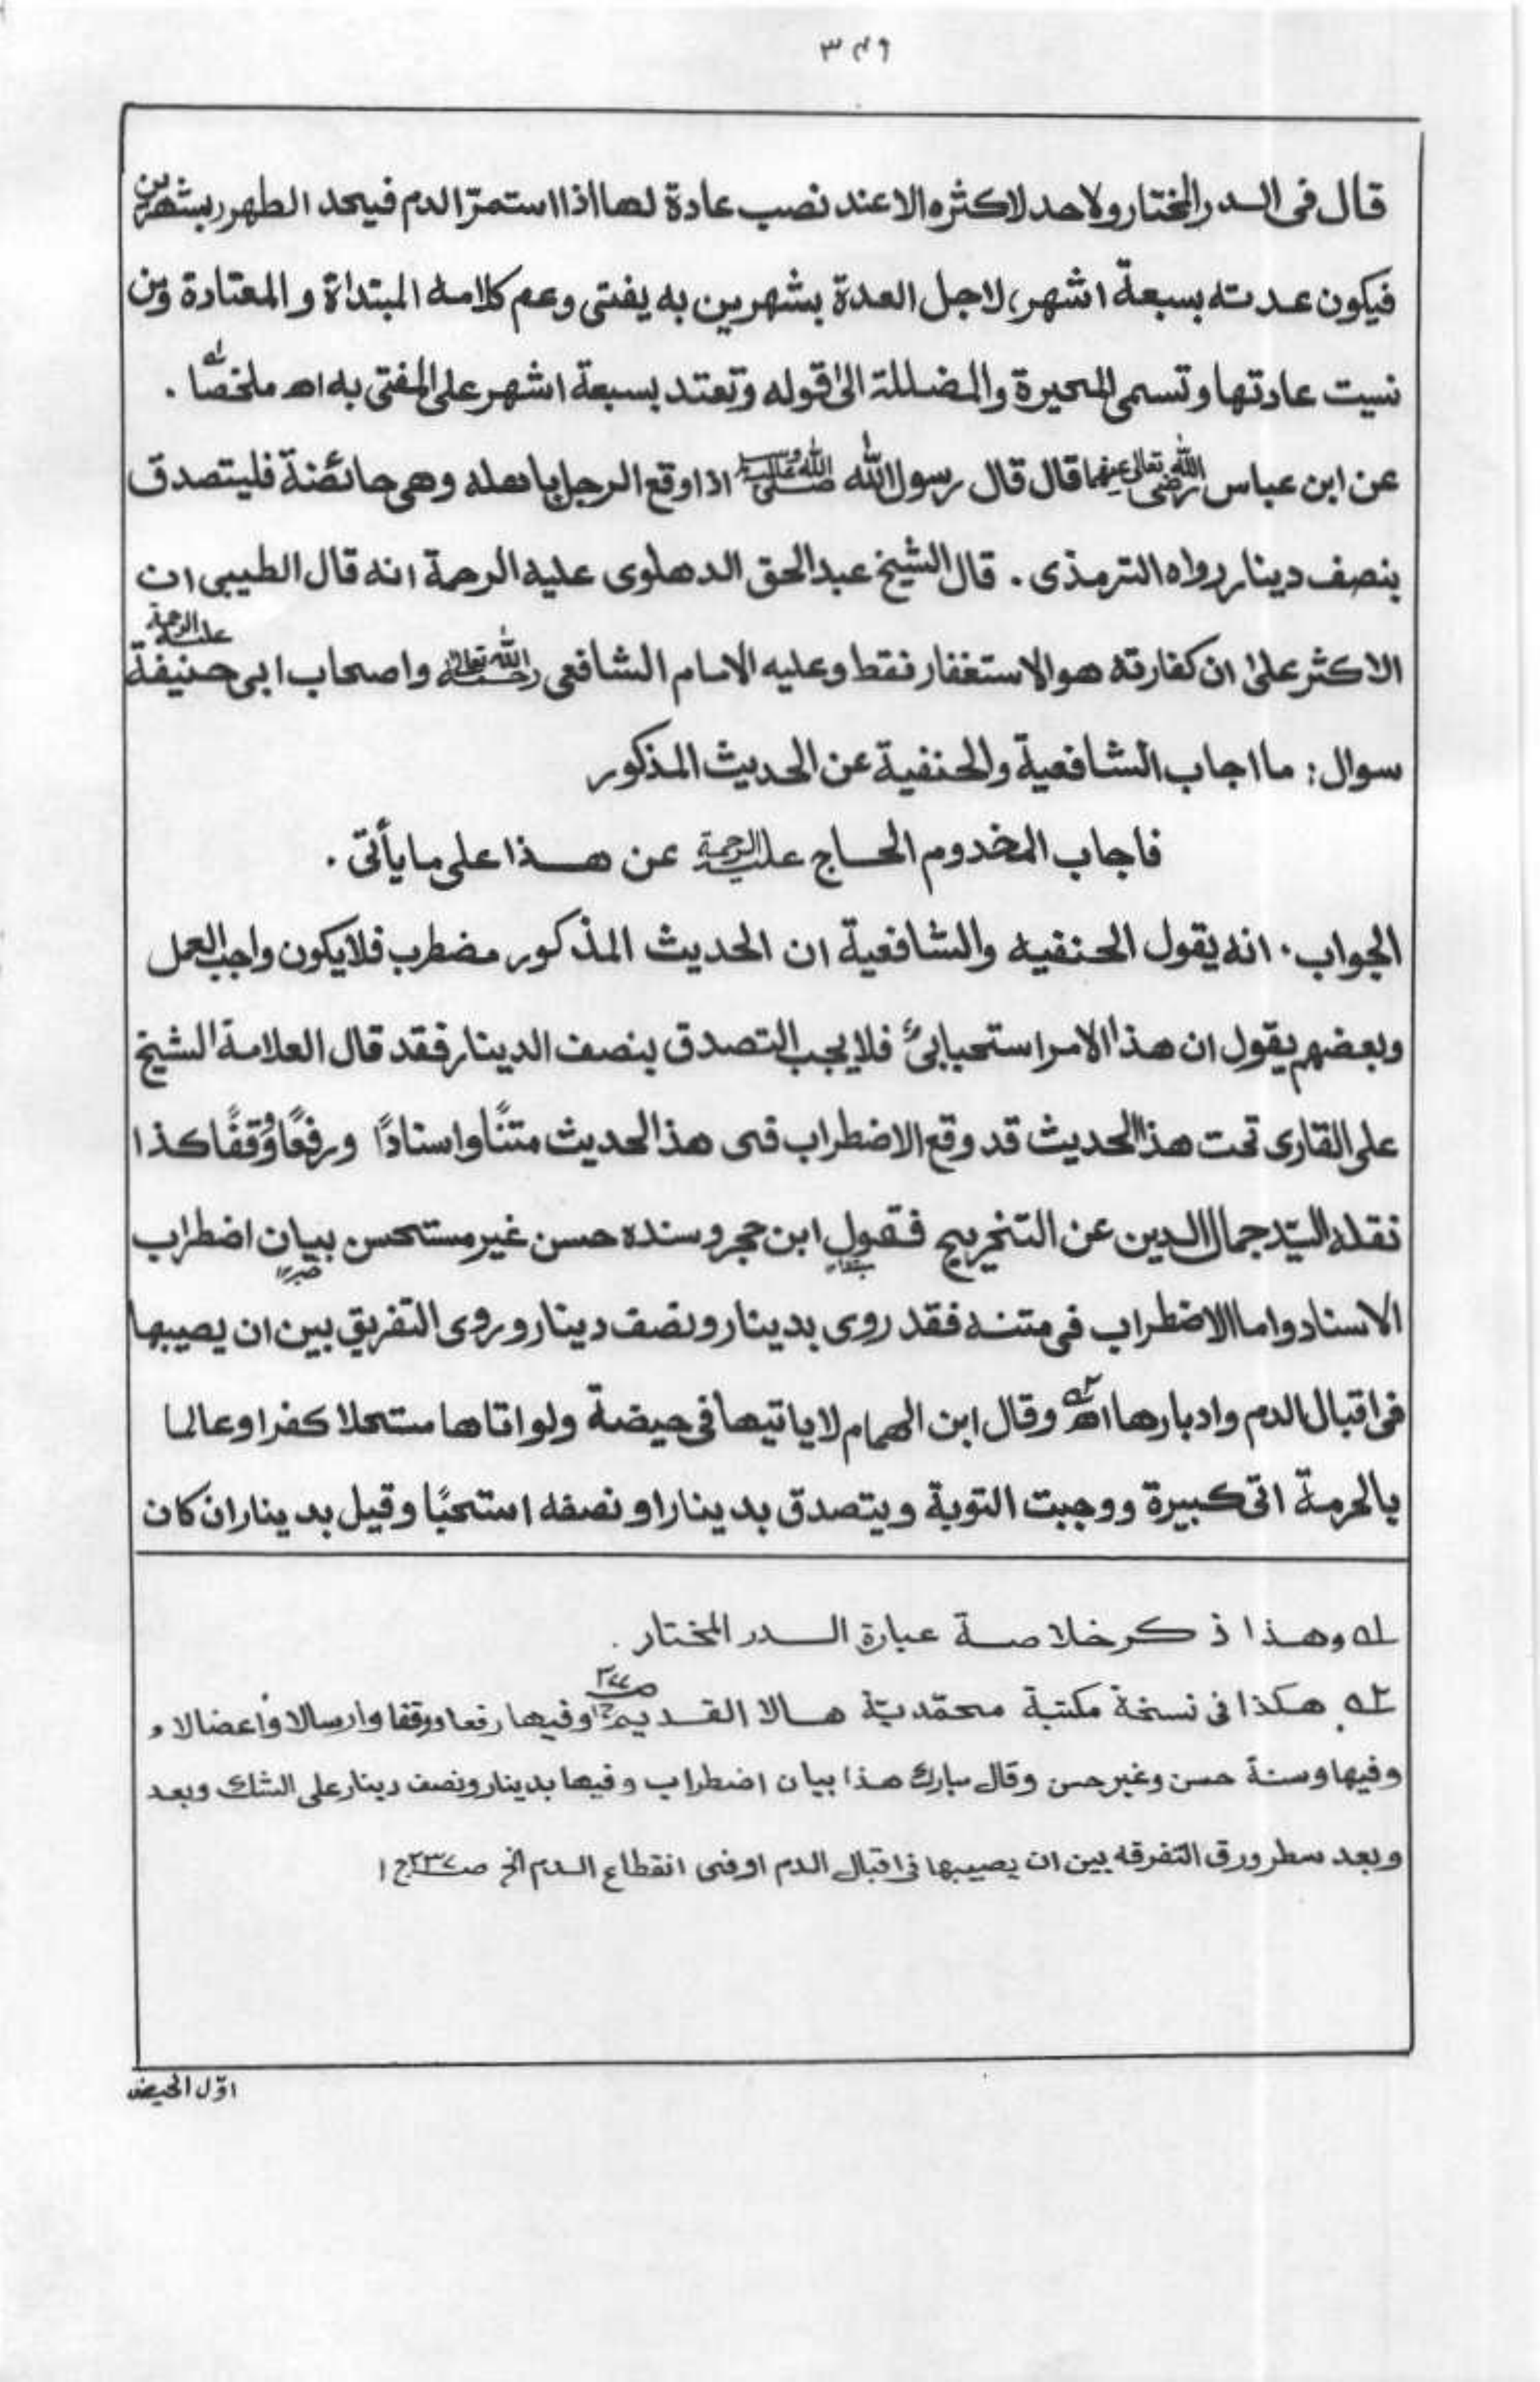 ٣٤٩
قال فی الدر المختار ولا حد لاكثره الا عند نصب عادة لها اذا استمرّ الدم فيحد الطهر بشهرين
فيكون عدته بسبعة اشهر، لاجل العدة بشهرين به يفتی وعم كلامه المبتداة والمعتادة ومن
نسيت عادتها وتسمی المحيرة والمضللة الیٰ قوله وتعتد بسبعة اشهر علی المفتی به اھ ملخصًا ۱ـه .
عن ابن عباس رضی الله تعالیٰ عنهما قال قال رسول الله صلی الله علیه وسلم اذا وقع الرجل باهله وهی حائضة فليتصدق
بنصف دينار رواه الترمذی . قال الشيخ عبد الحق الدهلوی عليه الرحمة انه قال الطيبی ان
الاكثر علیٰ ان كفارته هو الاستغفار فقط وعليه الامام الشافعی رحمه الله تعالیٰ واصحاب ابی حنيفة عليه الرحمة
سوال: ما اجاب الشافعية والحنفية عن الحديث المذكور
فاجاب المخدوم الحاج عليه الرحمة عن هذا علی ما يأتی .
الجواب . انه يقول الحنفيه والشافعية ان الحديث المذكور مضطرب فلا يكون واجب العمل
وبعضهم يقول ان هذا الامر استحبابیٌ فلا يجب التصدق بنصف الدينار فقد قال العلامة الشيخ
علی القاری تحت هذا الحديث قد وقع الاضطراب فی هذا لحديث متنًا واسنادًا ورفعًا وُقفًا كذا
نقله السيّد جمال الدين عن التخريج فقول ابن حجر وسنده حسن غير مستحسن بيان اضطراب
الاسناد واما الاضطراب فی متنه فقد روی بدينار ونصف دينار وروی التفريق بين ان يصيبها
فی اقبال الدم وادبارها اھ ۲ـه وقال ابن الهمام لا ياتيها فی حيضة ولو اتاها مستحلا كفر او عالما
بالحرمة اتی كبيرة ووجبت التوبة ويتصدق بدينار او نصفه استحبًا وقيل بدينار ان كان
۱ـه وهذا ذكر خلاصة عبارة الدر المختار .
۲ـه هكذا فی نسخة مكتبة محمّديّة هالا القديم وفيها رفعا ووقفا وارسالا واعضالا و
وفيها وسنة حسن وغير حسن وقال مبارك هذا بيان اضطراب وفيها بدينار ونصف دينار علی الشك وبعد
وبعد سطر ورق التفرقه بين ان يصيبها فی اقبال الدم او فی انقطاع الدم الخ صـ٢٣٧ ج ١
اوّل الحيض